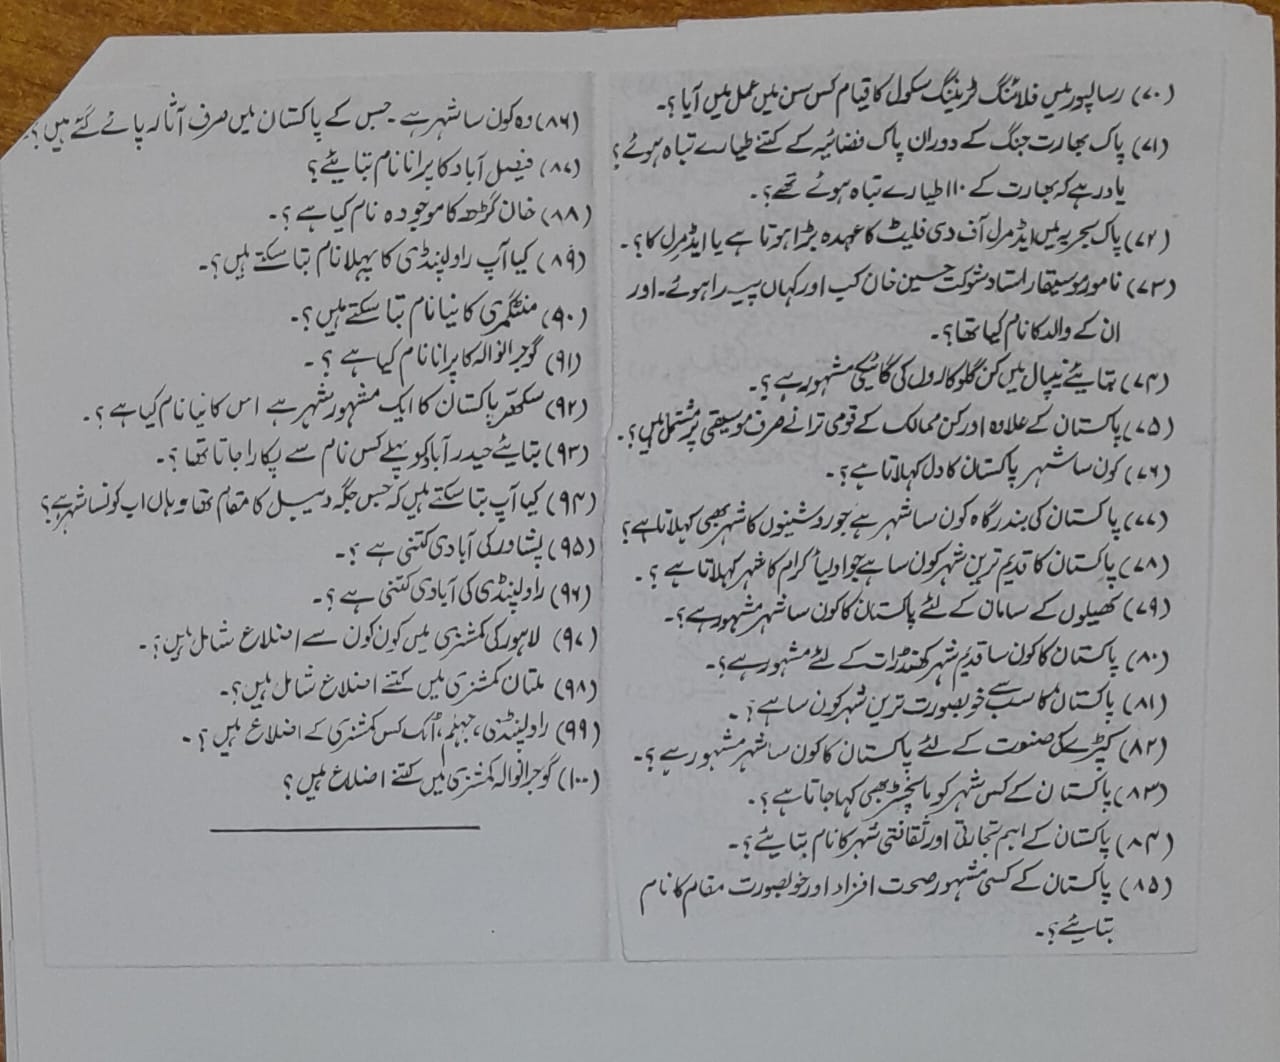 (۷۰) رسالپور میں فلائنگ ٹریننگ سکول کا قیام کس سن میں عمل میں آیا؟۔
(۷۱) پاک بھارت جنگ کے دوران پاک فضائیہ کے کتنے طیارے تباہ ہوئے؟
یاد رہے کہ بھارت کے ۱۱۰ طیارے تباہ ہوئے تھے؟۔
(۷۲) پاک بحریہ میں ایڈمرل آف دی فلیٹ کا عہدہ بڑا ہوتا ہے یا ایڈمرل کا؟۔
(۷۳) نامور موسیقار استاد شوکت حسین خان کب اور کہاں پیدا ہوئے۔ اور
ان کے والد کا نام کیا تھا؟۔
(۷۴) بتایئے نیپال میں کن گلوکاروں کی گائیکی مشہور ہے؟۔
(۷۵) پاکستان کے علاوہ اور کن ممالک کے قومی ترانے صرف موسیقی پر مشتمل ہیں؟۔
(۷۶) کون سا شہر پاکستان کا دل کہلاتا ہے؟۔
(۷۷) پاکستان کی بندرگاہ کون سا شہر ہے جو روشنیوں کا شہر بھی کہلاتا ہے؟
(۷۸) پاکستان کا قدیم ترین شہر کون سا ہے جو اولیأ کرام کا شہر کہلاتا ہے؟۔
(۷۹) کھیلوں کے سامان کے لئے پاکستان کا کون سا شہر مشہور ہے؟۔
(۸۰) پاکستان کا کون سا قدیم شہر کھنڈرات کے لئے مشہور ہے؟۔
(۸۱) پاکستان کا سب سے خوبصورت ترین شہر کون سا ہے؟۔
(۸۲) کپڑے کی صنعت کے لئے پاکستان کا کون سا شہر مشہور ہے؟۔
(۸۳) پاکستان کے کس شہر کو مانچسٹر بھی کہا جاتا ہے؟۔
(۸۴) پاکستان کے اہم تجارتی اور ثقافتی شہر کا نام بتایئے؟۔
(۸۵) پاکستان کے کسی مشہور صحت افزاد اور خوبصورت مقام کا نام
بتایئے؟۔
(۸۶) وہ کون سا شہر ہے۔ جس کے پاکستان میں صرف آثار پائے گئے ہیں؟۔
(۸۷) فیصل آباد کا پرانا نام بتایئے؟
(۸۸) خان گڑھ کا موجودہ نام کیا ہے؟۔
(۸۹) کیا آپ راولپنڈی کا پہلا نام بتا سکتے ہیں؟۔
(۹۰) منٹگمری کا نیا نام بتا سکتے ہیں؟۔
(۹۱) گوجرانوالہ کا پرانا نام کیا ہے؟۔
(۹۲) سکھر پاکستان کا ایک مشہور شہر ہے اس کا نیا نام کیا ہے؟۔
(۹۳) بتایئے حیدر آباد کو پہلے کس نام سے پکارا جاتا تھا؟۔
(۹۴) کیا آپ بتا سکتے ہیں کہ جس جگہ دیبل کا مقام تھا وہاں اب کونسا شہر ہے؟
(۹۵) پشاور کی آبادی کتنی ہے؟۔
(۹۶) راولپنڈی کی آبادی کتنی ہے؟۔
(۹۷) لاہور کی کمشنری میں کون کون سے اضلاع شامل ہیں؟۔
(۹۸) ملتان کمشنری میں کتنے اضلاع شامل ہیں؟۔
(۹۹) راولپنڈی، جہلم، اٹک کس کمشنری کے اضلاع ہیں؟۔
(۱۰۰) گوجرانوالہ کمشنری میں کتنے اضلاع ہیں؟